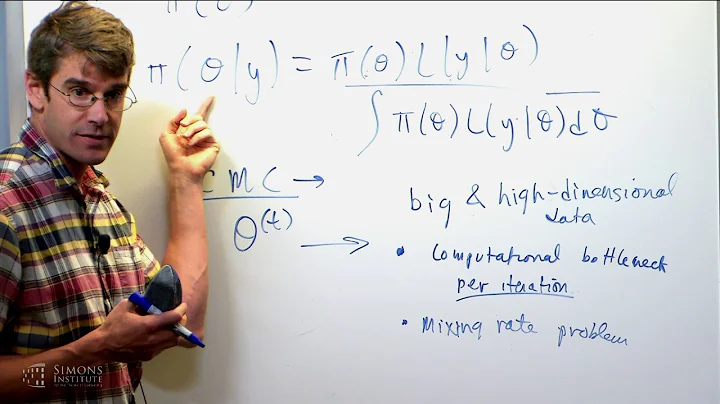 π(θ|y) = π(θ) L(y|θ)
∫ π(θ) L(y|θ) dθ
C M C →
θ(t) →
big & high-dimensional
data
• Computational bottleneck
per iteration
• Mixing rate problem
SIMONS
INSTITUTE
for the Theory of Computing